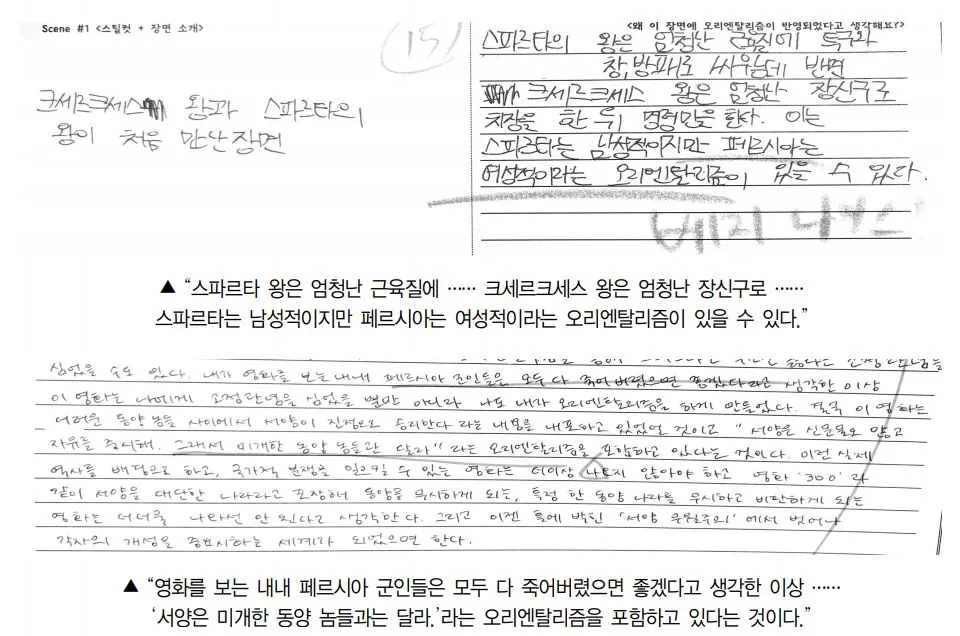 Scene #1 <스틸컷 + 장면 소개>
15
크세르크세스 왕과 스파르타의
왕이 처음 만난 장면
<왜 이 장면에 오리엔탈리즘이 반영되었다고 생각해요?>
스파르타의 왕은 엄청난 근육질에 투구와
창, 방패로 싸우는데 반면
크세르크세스 왕은 엄청난 장신구로
치장을 한 뒤 명령만을 한다. 이는
스파르타는 남성적이지만 페르시아는
여성적이라는 오리엔탈리즘이 있을 수 있다.
▲ “스파르타 왕은 엄청난 근육질에 …… 크세르크세스 왕은 엄청난 장신구로 ……
스파르타는 남성적이지만 페르시아는 여성적이라는 오리엔탈리즘이 있을 수 있다.”
심었을 수도 있다. 내가 영화를 보는 내내 페르시아 군인들은 모두 다 죽어버렸으면 좋겠다라고 생각한 이상
이 영화는 나에게 고정관념을 심었을 뿐만 아니라 나도 내가 오리엔탈리즘을 하게 만들었다. 결국 이 영화는
더러운 동양 놈들 사이에서 서양이 진정으로 승리한다 라는 내용을 내포하고 있었던 것이고 "서양은 신분들도 않고
자유를 중시해. 그래서 미개한 동양 놈들관 달라" 라는 오리엔탈리즘을 포함하고 있다는 것이다. 이런 실제
역사를 배경으로 하고, 국가적 분쟁을 일으킬 수 있는 영화는 더이상 나오지 않아야 하고 영화 '300'과
같이 서양을 대단한 나라라고 포장해 동양을 무시하게 되는, 특정 한 동양 나라를 무시하고 비판하게 되는
영화는 더더욱 나와선 안 된다고 생각한다. 그리고 이젠 틀에 박힌 '서양 우월주의' 에서 벗어나
각자의 개성을 중요시하는 세계가 되었으면 한다.
▲ “영화를 보는 내내 페르시아 군인들은 모두 다 죽어버렸으면 좋겠다고 생각한 이상 ……
‘서양은 미개한 동양 놈들과는 달라.’라는 오리엔탈리즘을 포함하고 있다는 것이다.”